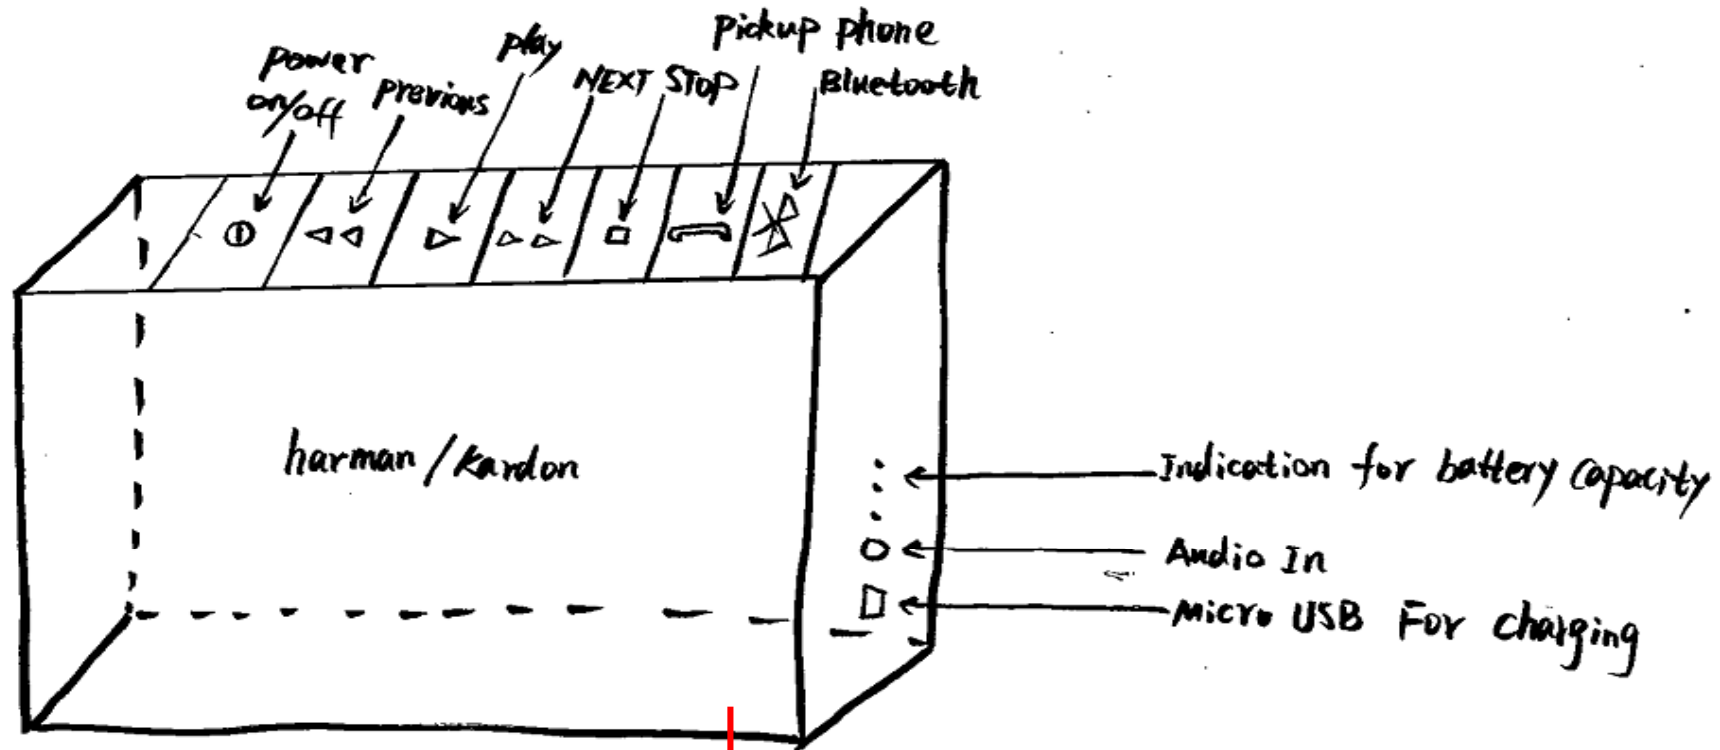 Power
on/off
previous
play
NEXT
STOP
Pickup phone
Bluetooth
harman/kardon
Indication for battery capacity
Audio In
Micro USB For charging